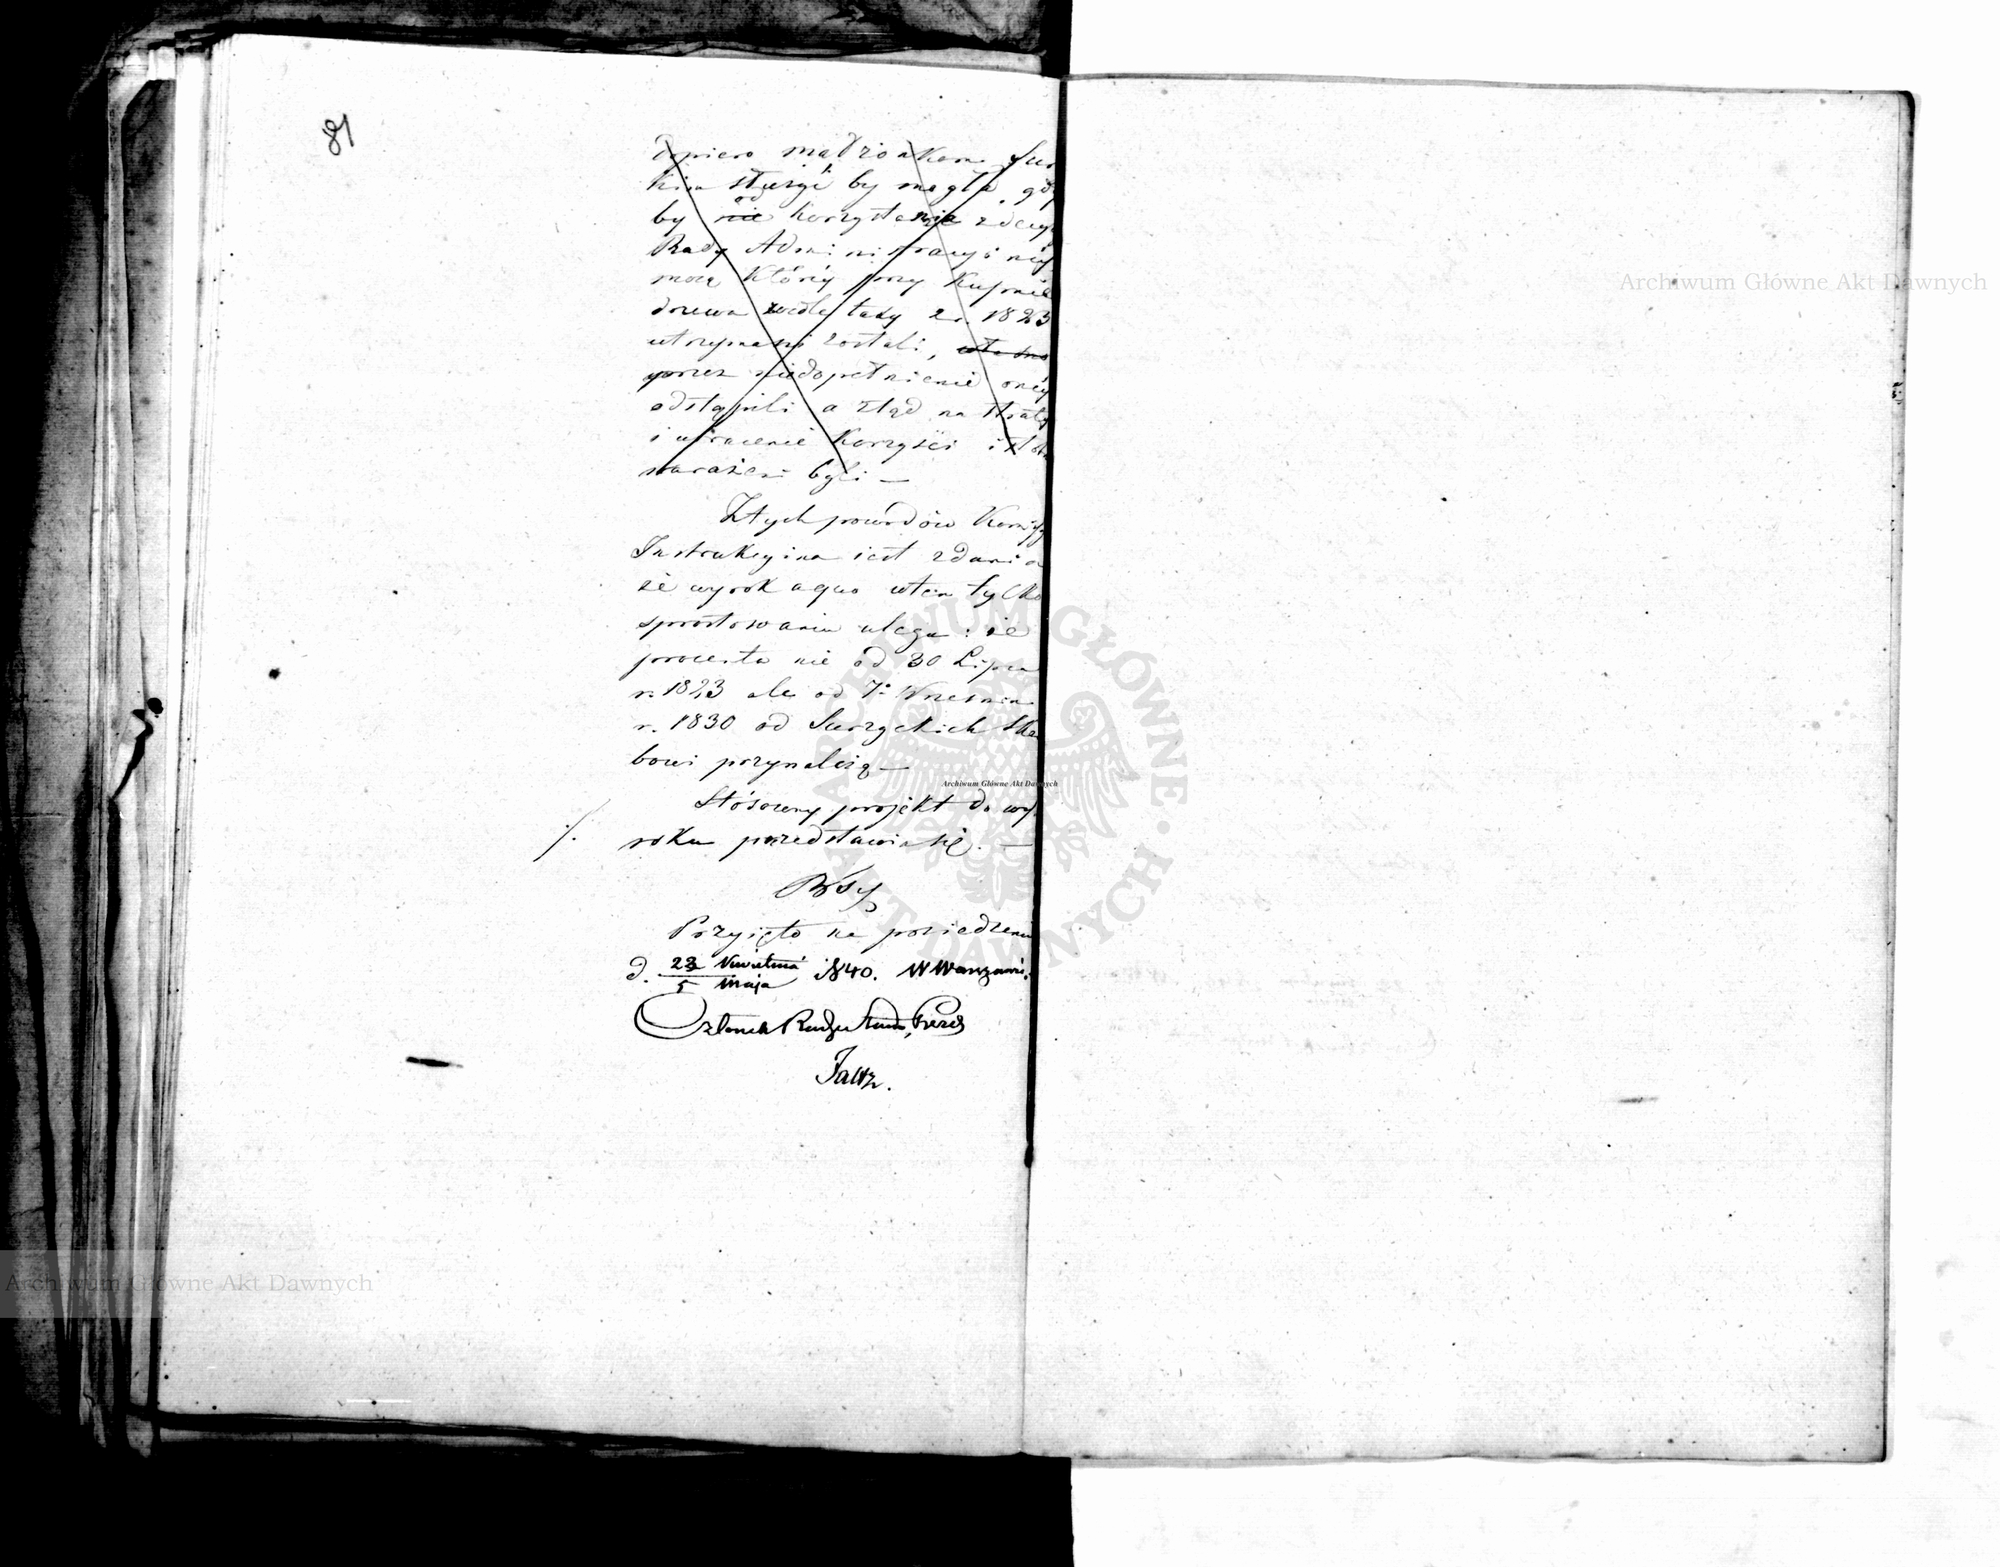 81
dopiero małżonkom Sur
kim służyć by mogła, gdy
by nie od korzystania z decyzyi
Rady Administracyi néy
mocą któréy przy kupnie
drzewa wedle taxy z r. 1823
utrzymani zostali,
przez niedopełnienie onéy
odstąpili a ztąd na straty
i utracenie korzyści
narażeni byli —
Z tych powodów Komissya
Instrukcyina iest zdania
że wyrok a quo w tem tylko
sprostowaniu ulega: że
procenta nie od 30 Lipca
r. 1823 ale od 7º Września
r. 1830 od Surzyckich Skar
bowi przynależą —
Stósowny projekt do wy
roku przedstawia się. —
./.
Przyięto na posiedzeniu
d. 23 Kwietnia / 5 Maja 1840. w Warszawie.
Członek Rady Stanu, Prezes
Archiwum Główne Akt Dawnych
Archiwum Główne Akt Dawnych
Archiwum Główne Akt Dawnych
ARCHIWUM GŁÓWNE AKT DAWNYCH